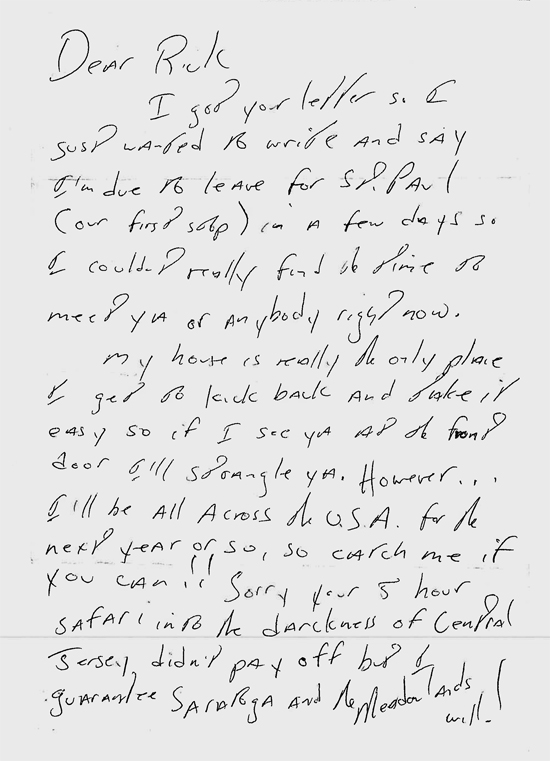 Dear Rick
I got your letter so I
just wanted to write and say
I'm due to leave for St. Paul
(our first stop) in a few days so
I couldn't really find the time to
meet ya or anybody right now.
My house is really the only place
I get to kick back and take it
easy so if I see ya at the front
door I'll strangle ya. However...
I'll be all across the U.S.A. for the
next year or so, so catch me if
you can!! Sorry your 5 hour
safari into the darckness of Central
Jersey, didn't pay off but I
guarantee Saratoga and the Meadowlands
will!